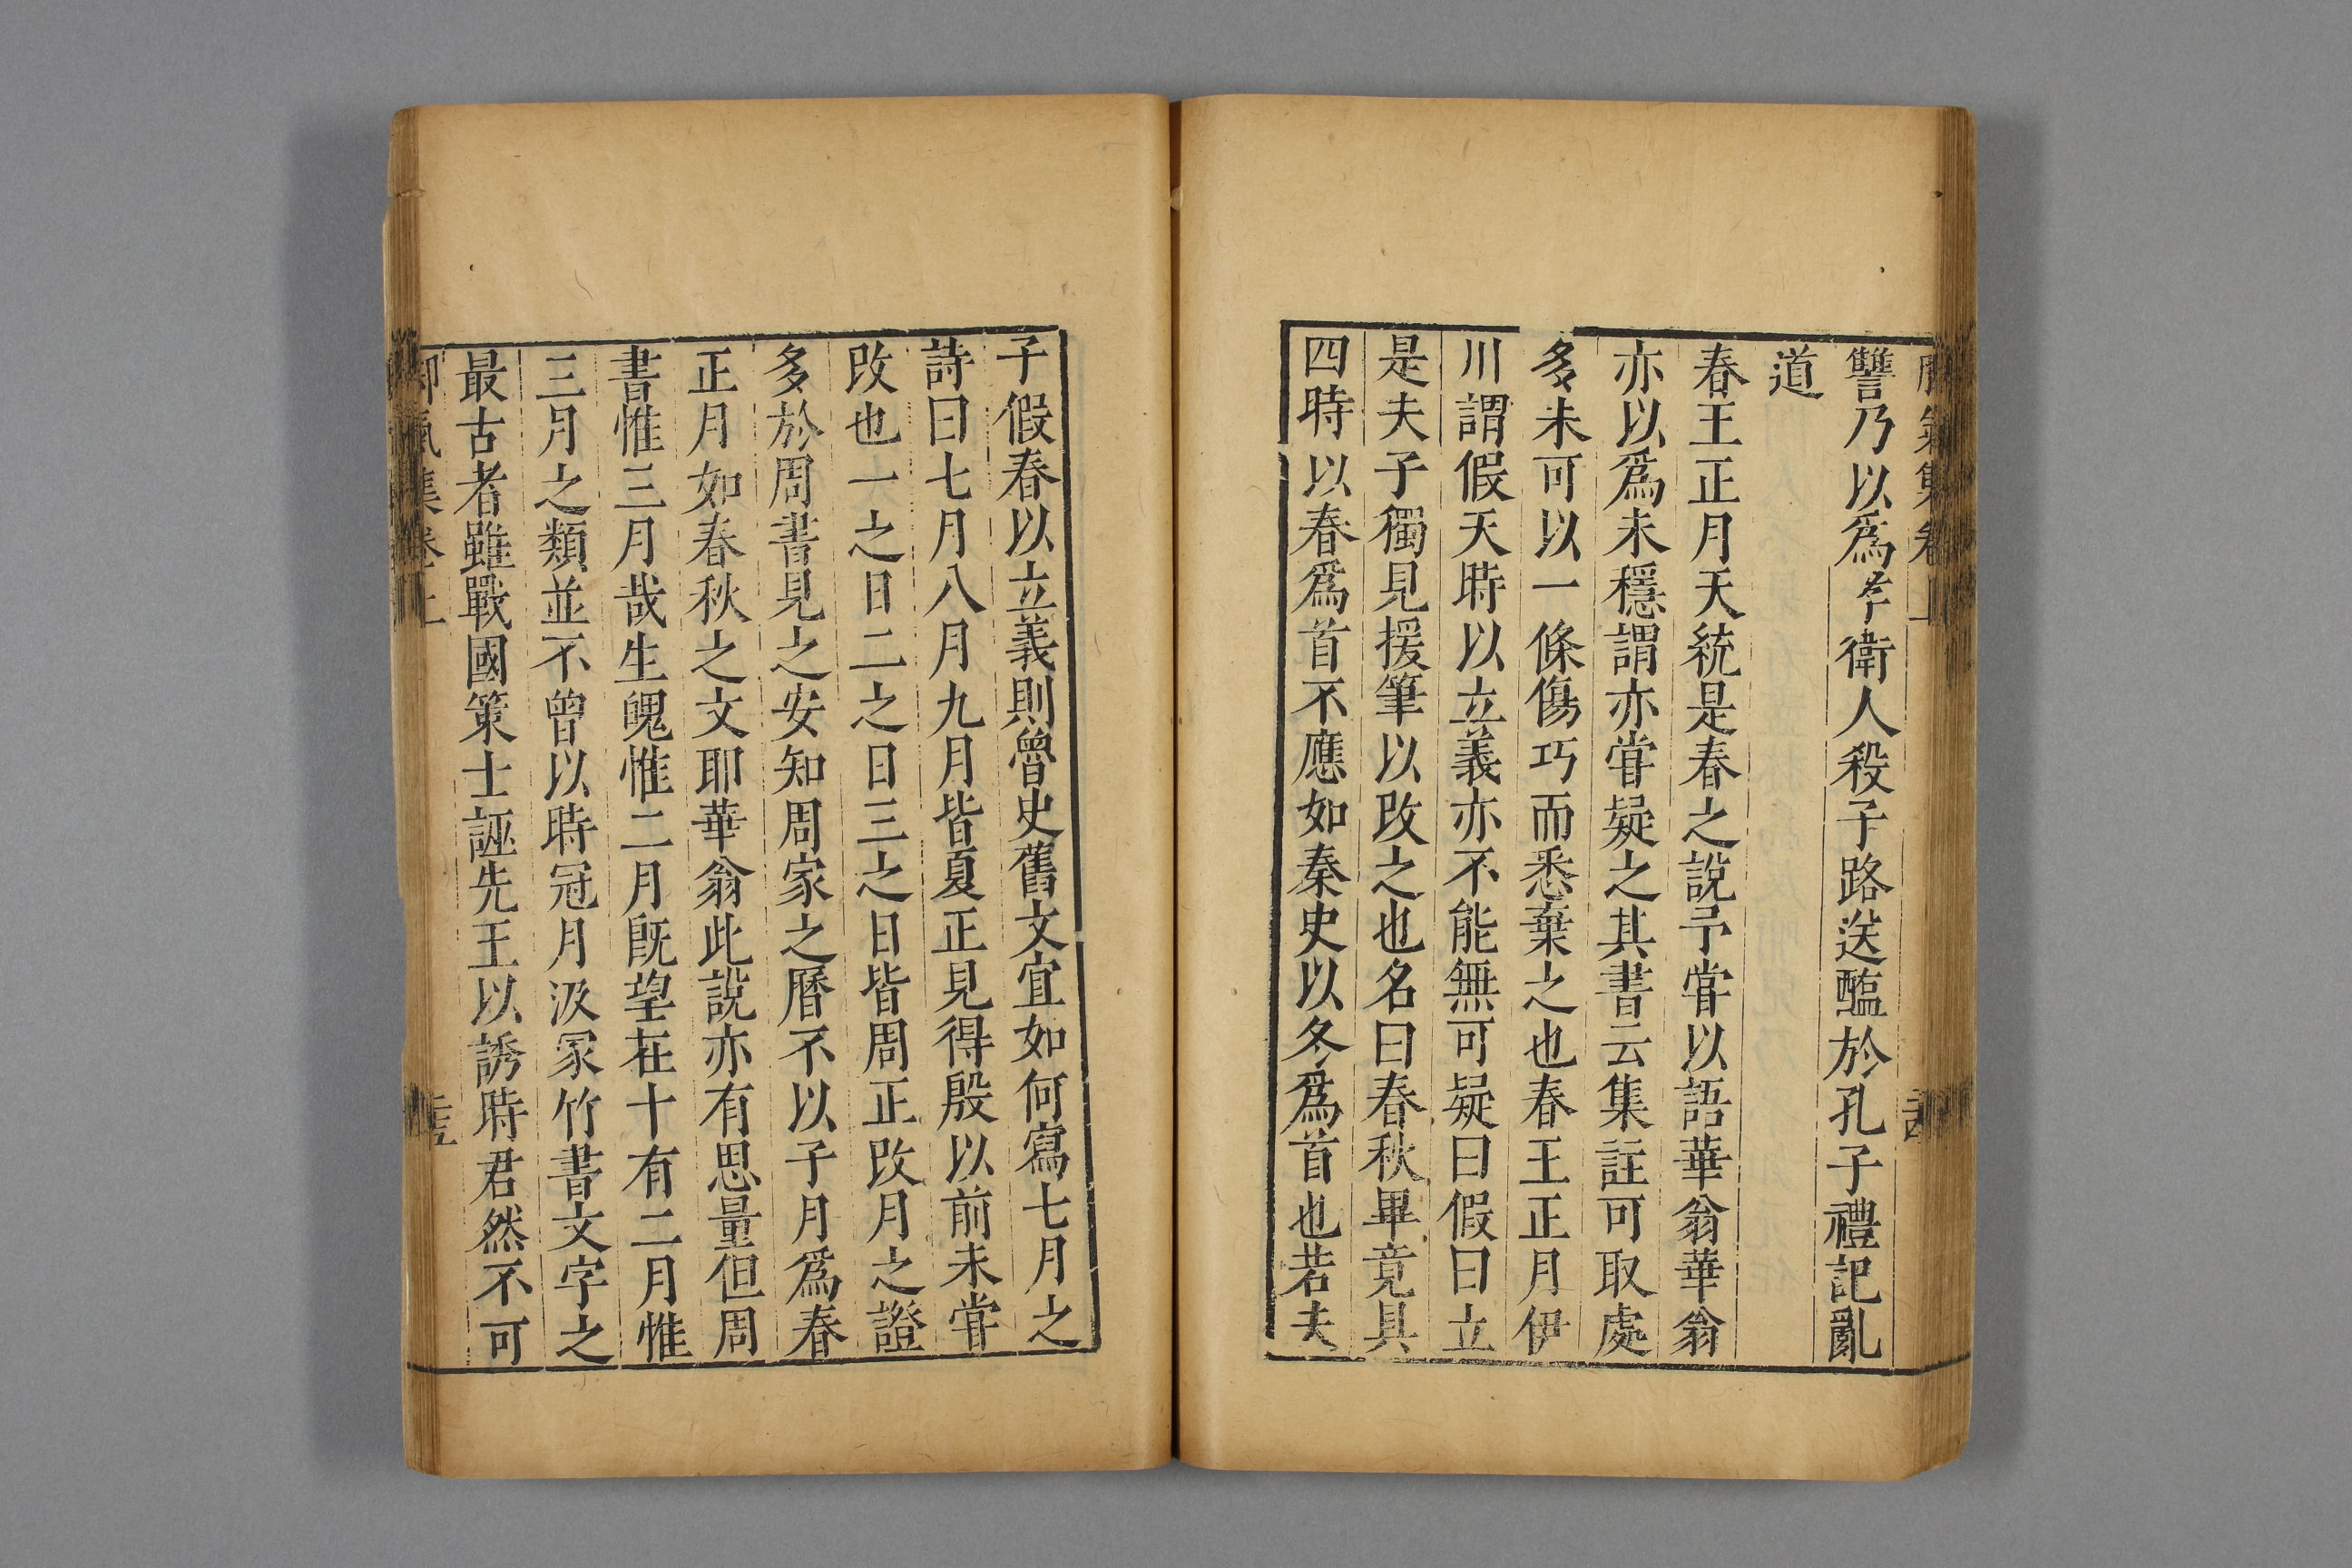 讐乃以爲孝衛人殺子路送醢於孔子禮記亂
道
春王正月天統是春之說予嘗以語華翁華翁
亦以爲未穩謂亦嘗疑之其書云集註可取處
多未可以一條傷巧而悉棄之也春王正月伊
川謂假天時以立義亦不能無可疑曰假曰立
是夫子獨見援筆以改之也名曰春秋畢竟具
四時以春爲首不應如秦史以冬爲首也若夫
子假春以立義則魯史舊文宜如何寫七月之
詩曰七月八月九月皆夏正見得殷以前未嘗
改也一之日二之日三之日皆周正改月之證
多於周書見之安知周家之曆不以子月爲春
正月如春秋之文耶華翁此說亦有思量但周
書惟三月哉生魄惟二月既望在十有二月惟
三月之類並不曾以時冠月汲冢竹書文字之
最古者雖戰國策士誣先王以誘時君然不可
氣集卷上